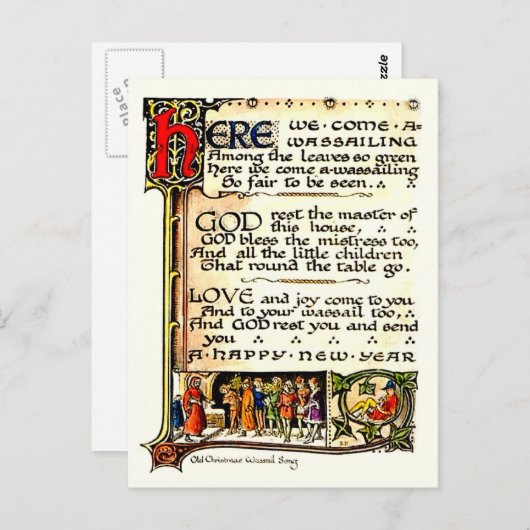 HERE WE COME A-
WASSAILING
Among the leaves so green
Here we come a-wassailing
So fair to be seen.
GOD rest the master of
this house,
GOD bless the mistress too,
And all the little children
That round the table go.
LOVE and joy come to you
And to your wassail too,
And GOD rest you and send
you
A HAPPY NEW YEAR
Old Christmas Wassail Song
Place
zazzle